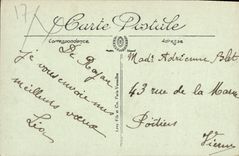 17
Carte Postale
Correspondance
Adresse
De Royan
je vous envoie mes
meilleurs vœux
Léo
Lévy Fils et Cie, Paris
Mad. Adrienne Blet
43 rue de la Marne
Poitiers
Vienne